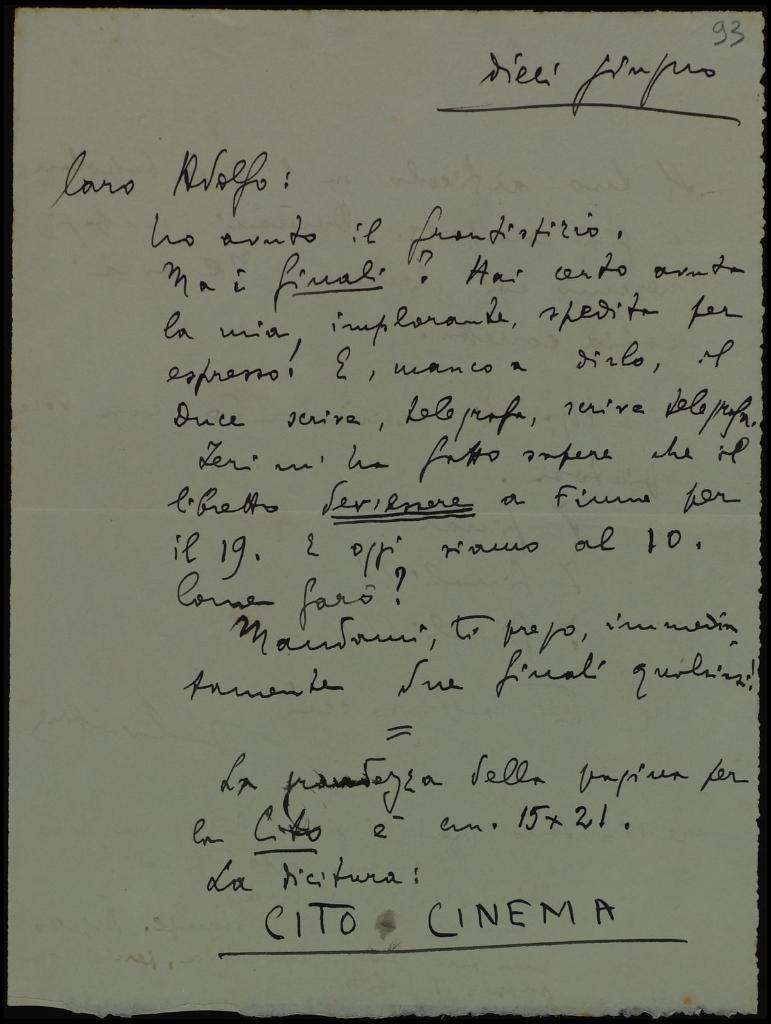 93
dieci giugno
Caro Adolfo:
ho avuto il frontispizio.
Ma i finali? Hai certo avuta
la mia, implorante, spedita per
espresso! E, manco a dirlo, il
Duce scrive, telegrafa, scrive telegrafa.
Ieri m'ha fatto sapere che il
libretto dev'essere a Fiume per
il 19. E oggi siamo al 10.
Come farò?
Mandami, ti prego, immedia
tamente due finali qualsiasi!
=
La grandezza della pagina per
la Cito è cm. 15x21.
La dicitura:
CITO - CINEMA